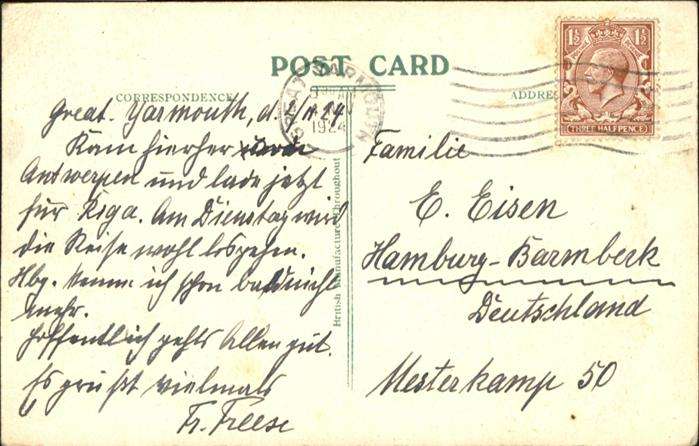 POST CARD
CORRESPONDENCE
ADDRES
GREAT YARMOUTH
1924
1½ 1½
THREE HALFPENCE
British Manufacture Throughout
Great. Yarmouth, d. 24
Kam hierher
Antwerpen und lade jetzt
für Riga. Am Dienstag wird
die Reise wohl losgehen.
Hbg. kenne ich schon bald nicht
mehr.
Hoffentlich gehts Allen gut.
Es grüßt vielmals
Fr. Freese
Familie
E. Eisen
Hamburg-Barmbeck
Deutschland
Mesterkamp 50